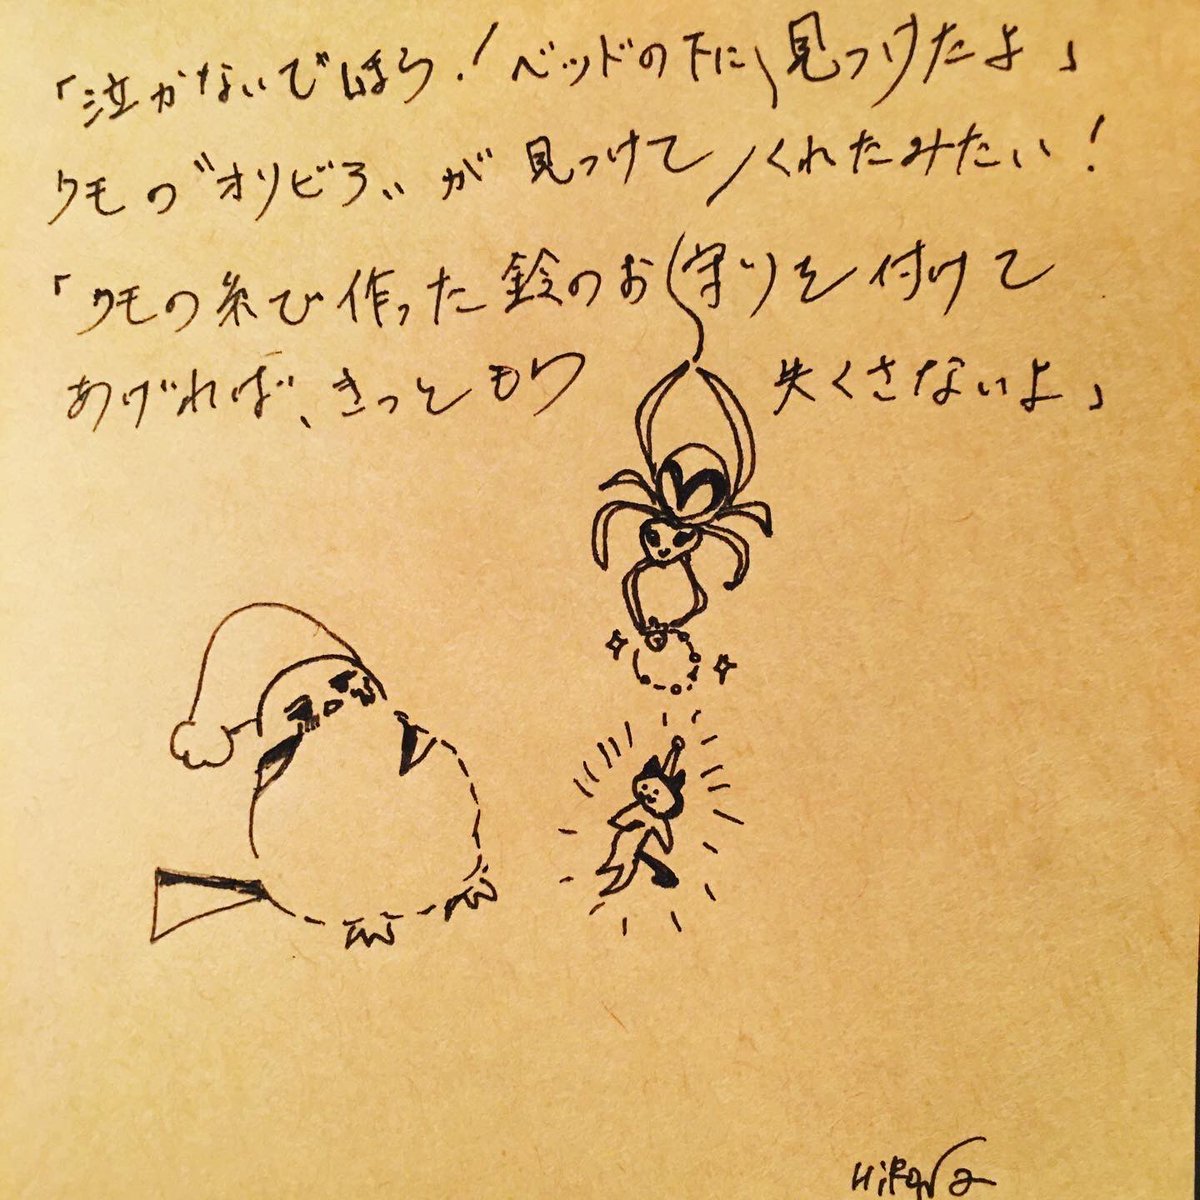 「泣かないでほら！ベッドの下に見つけたよ」
クモの〝オリビア〟が見つけてくれたみたい！
「クモの糸で作った鈴のお守りを付けて
あげれば、きっともう失くさないよ」